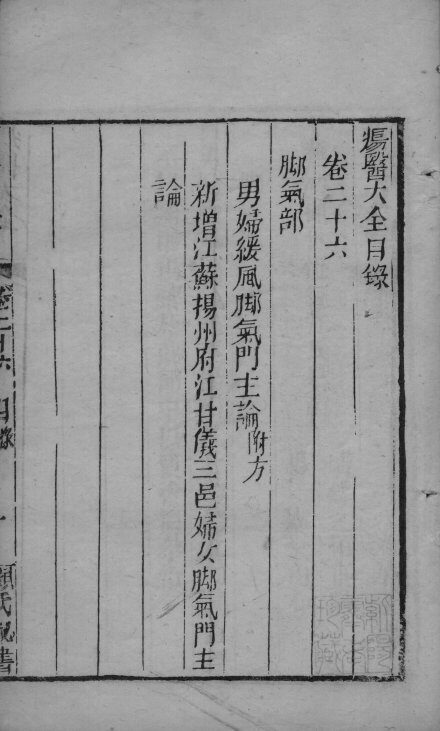 瘍醫大全目錄
卷二十六
脚氣部
男婦緩風脚氣門主論附方
新增江蘇揚州府江甘儀三邑婦女脚氣門主
論
卷二十六 目錄
顧氏祕書